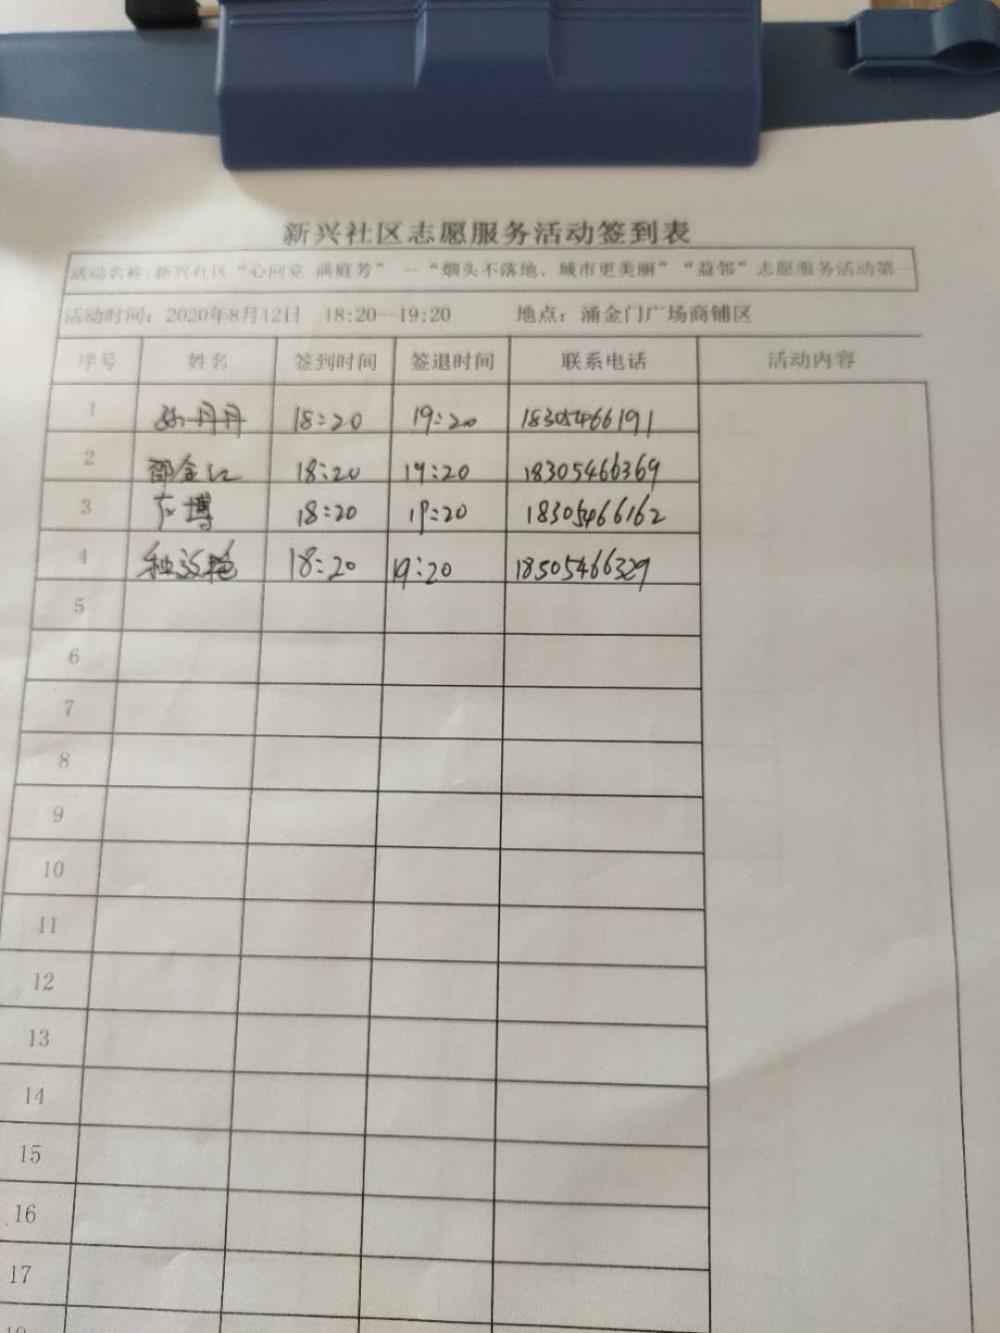 新兴社区志愿服务活动签到表
活动名称:新兴社区“心向党 满庭芳” --“烟头不落地、城市更美丽”“益邻”志愿服务活动第一
活动时间：2020年8月12日 18:20--19:20 地点：涌金门广场商铺区
序号 姓名 签到时间 签退时间 联系电话 活动内容
1 孙丹丹 18:20 19:20 18305466191
2 邵金红 18:20 19:20 18305466369
3 博 18:20 19:20 18305466162
4 18:20 19:20 18505466329
5
6
7
8
9
10
11
12
13
14
15
16
17